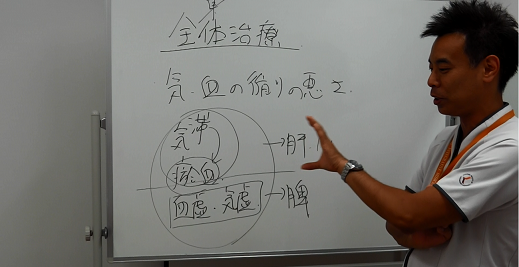 全体治療
気・血の循りの悪さ.
気滞
→肝.
瘀血
血虚・気虚
→脾